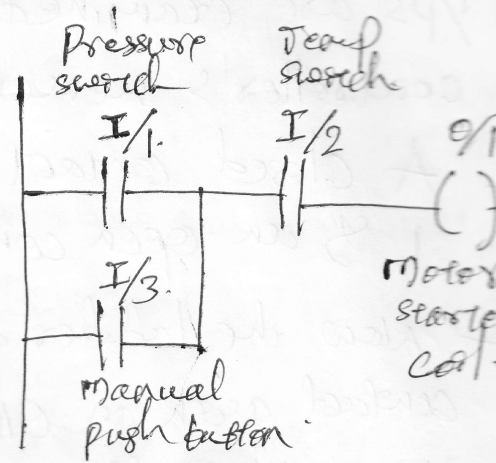 Pressure
switch
Temp
switch
I/1.
I/2
O/1
I/3.
Motor
starte
coil
Manual
push button.